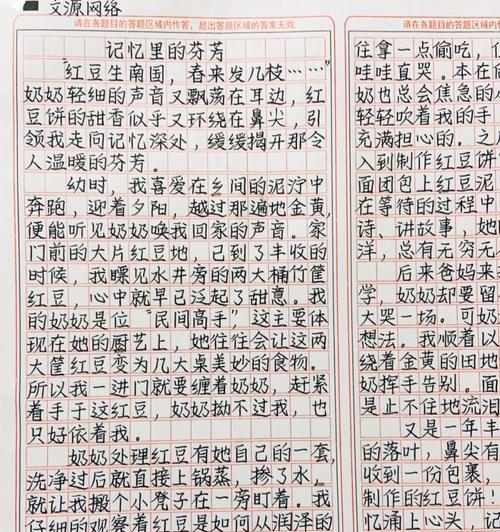 文源网络
请在各题目的答题区域内作答，超出答题区域的答案无效
记忆里的芬芳
“红豆生南国，春来发几枝……”
奶奶轻细的声音又飘荡在耳边，红
豆饼的甜香似乎又环绕在鼻尖，引
领我走向记忆深处，缓缓揭开那令
人温暖的芬芳。
幼时，我喜爱在乡间的泥泞中
奔跑，迎着夕阳，越过那遍地金黄，
便能听见奶奶唤我回家的声音。家
门前的大片红豆地，己到了丰收的
时候，我瞟见水井旁的两大桶竹筐
红豆，心中就早已泛起了甜意。我
的奶奶是位“民间高手”，这主要体
现在她的厨艺上，她往往会让这两
大筐红豆变为几大桌美妙的食物。
所以我一进门就要缠着奶奶，赶紧
着手于这红豆，奶奶拗不过我，也
只好依着我。
奶奶处理红豆有她自己的一套，
洗净过后就直接上锅蒸，掺了水，
就让我搬个小凳子在一旁盯着。我
仔细的观察着红豆是如何从润泽的
请在各题目的答题区
住拿一点偷吃，
哇哇直哭。本在
奶也总会焦急的
轻轻吹着我的手
充满担心的。
入到制作红豆饼
面团包上红豆泥
在等待的过程中
诗、讲故事，她
洋，总有无穷无
后来爸妈来
学，奶奶却要留
大哭一场。可奶
想法。我顺着以
绕着金黄的田地
奶挥手告别。面
是止不住地流泪
又是一年丰
的落叶，鼻尖有
收到一份包裹，
制作的红豆饼！
忆涌上心头，